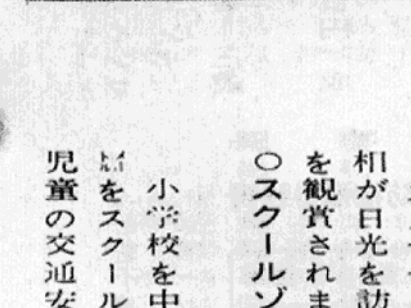 相が日光を訪
を観賞されま
○スクールゾ
小学校を中
をスクール
児童の交通安